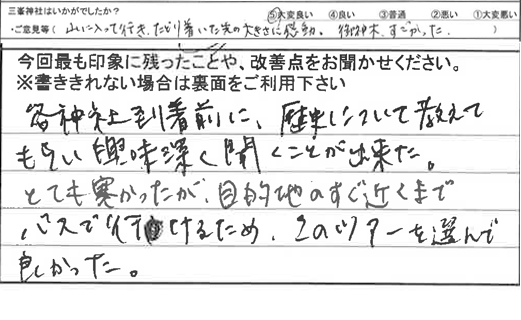 三峯神社はいかがでしたか？ ⑤大変良い ④良い ③普通 ②悪い ①大変悪い
・ご意見等（ 山に入って行き、たどり着いた先の大きさに感動。 御神木、すごかった。 ）
今回最も印象に残ったことや、改善点をお聞かせください。
※書ききれない場合は裏面をご利用下さい
各神社到着前に、歴史について教えて
もらい興味深く聞くことが出来た。
とても寒かったが、目的地のすぐ近くまで
バスで行けるため、このツアーを選んで
良かった。